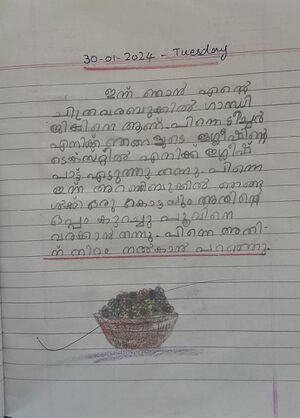 30-01-2024 - Tuesday
ഇന്ന് ഞാൻ എന്റെ
ചിത്രവരബുക്കിൽ ഗാന്ധി
ജിക്കിനെ ആണ്. പിന്നെ ടീച്ചർ
എനിക്ക് ഞങ്ങളുടെ ഇംഗ്ലീഷിന്റെ
ടെക്സ്റ്റിൽ എനിക്ക് ഇംഗ്ലീഷ്
പാട്ട് എടുത്തു തന്നു. പിന്നെ
ഇന്ന് ബുക്കിൽ ഞങ്ങ
ൾക്ക് ഒരു കൊട്ടയും അതിന്റെ
ഒപ്പം കുറച്ചു പൂവിനെ
വരക്കാൻ തന്നു. പിന്നെ അതി
ന് നിറം നൽകാൻ പറഞ്ഞു.